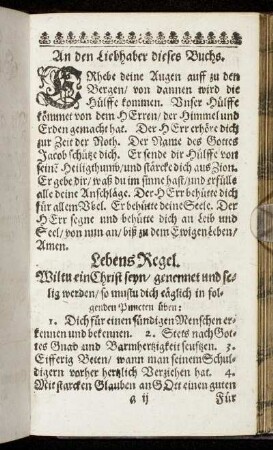 An den Liebhaber dieses Buchs.
ERhebe deine Augen auff zu den
Bergen/ von dannen wird die
Hülffe kommen. Unser Hülffe
kömmet von dem HErren/ der Himmel und
Erden gemacht hat. Der HErr erhöre dich
zur Zeit der Noth. Der Name des Gottes
Jacob schütze dich. Er sende dir Hülffe von
sein? Heiligthumb/ und stärcke dich aus Zion.
Er gebe dir/ waß du im sinne hast/ und erfülls
alle deine Anschläge. Der HErr behütte dich
für allem Vbel. Er behütte deine Seele. Der
HErr segne und behütte dich an Leib und
Seel/ von nun an/ biß zu dem Ewigen Leben/
Amen.
Lebens Regel.
Wiltu ein Christ seyn/ genennet und se-
lig werden/ so mustu dich täglich in fol-
genden Puncten üben:
1. Dich für einen sündigen Menschen er-
kennen und bekennen. 2. Stets nach Got-
tes Gnad und Barmhertzigkeit seufftzen. 3.
Eifferig Beten/ wann man seinem Schul-
digern vorher hertzlich Verziehen hat. 4.
Mit starcken Glauben an GOtt einen guten
a ij Für